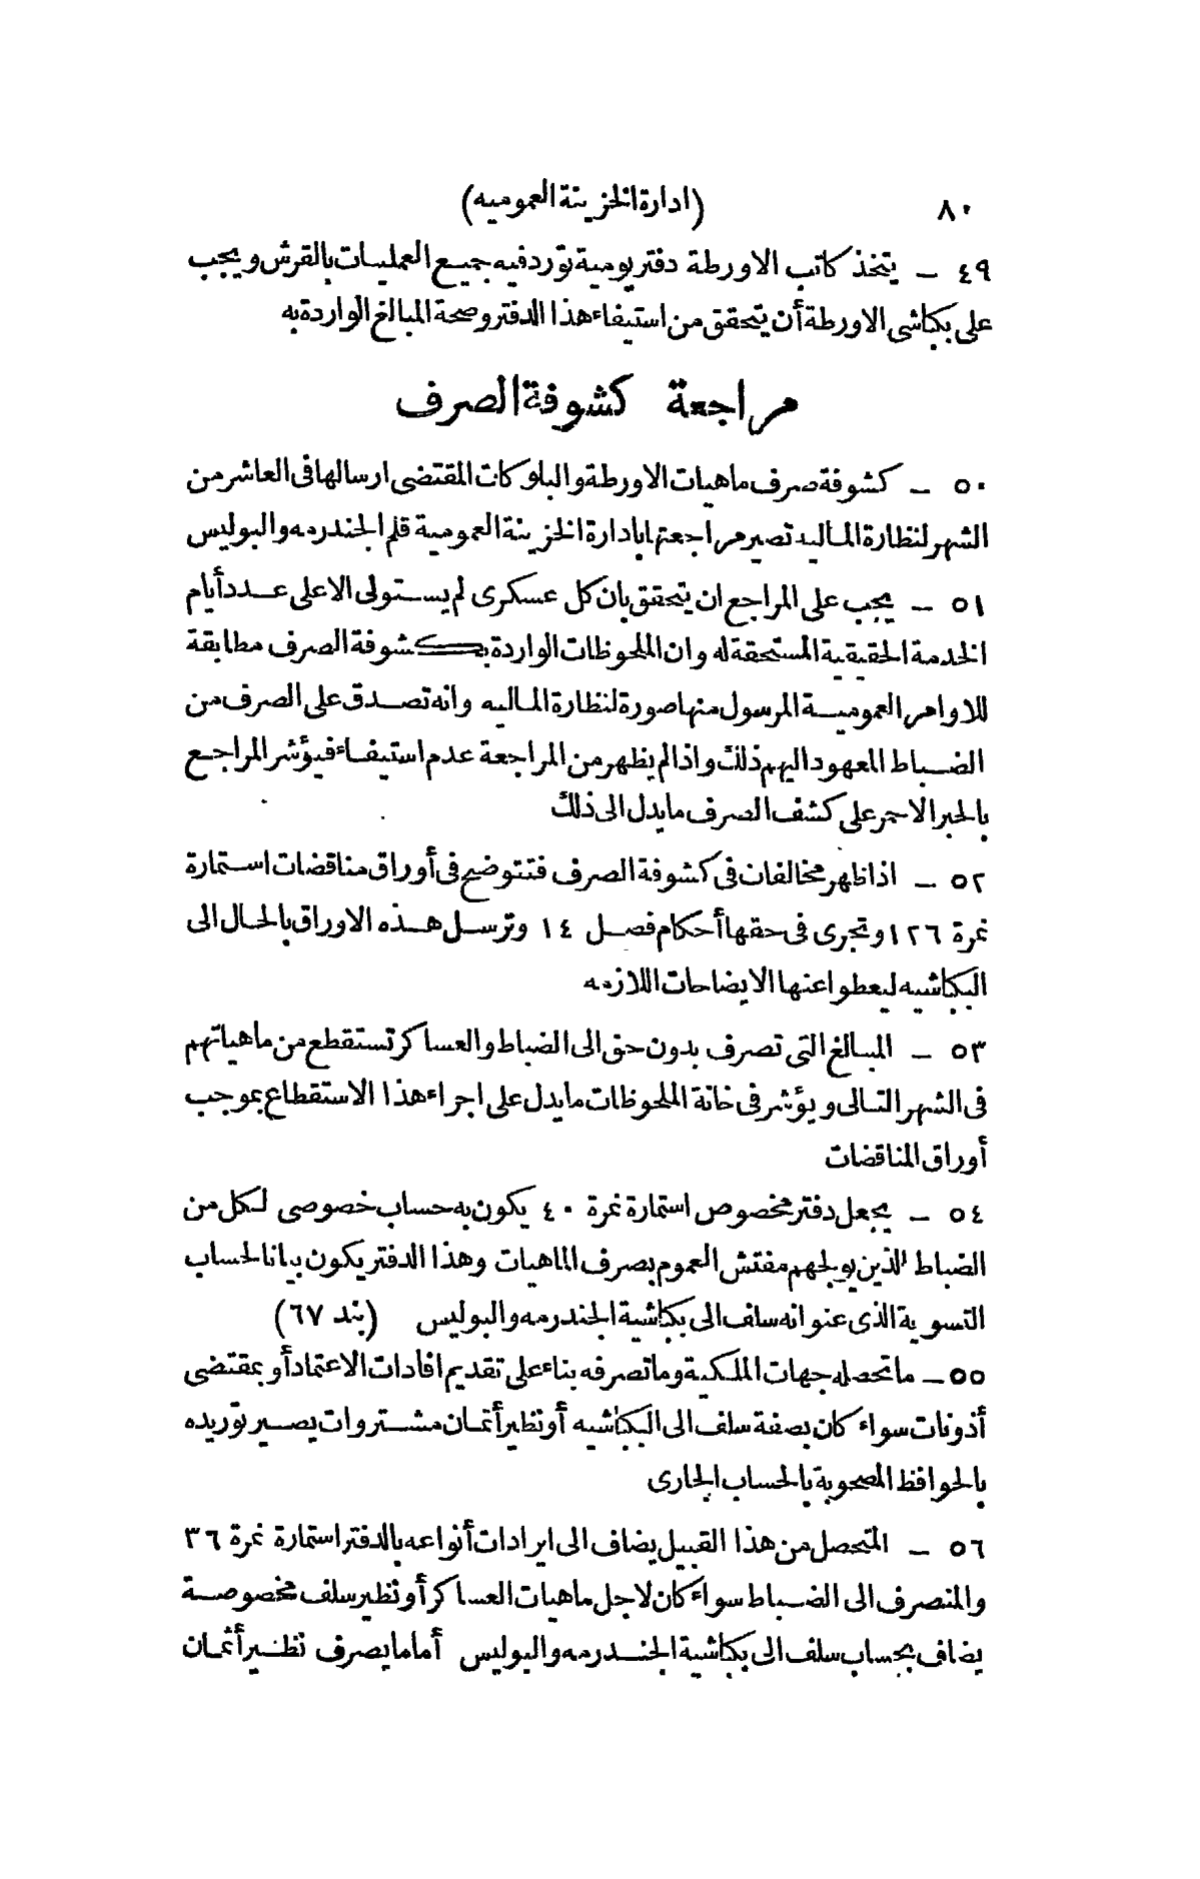 ٨٠
(ادارة الخزينة العموميه)
٤٩ — يتخذ كاتب الاورطة دفتر يومية تورد فيه جميع العمليات بالقرش ويجب
على بكباشى الاورطة أن يتحقق من استيفاء هذا الدفتر وصحة المبالغ الواردة به
مراجعة كشوفة الصرف
٥٠ — كشوفة صرف ماهيات الاورطة والبلوكات المقتضى ارسالها فى العاشر من
الشهر لنظارة الماليه تصير مراجعتها بادارة الخزينة العمومية قلم الجندرمه والبوليس
٥١ — يجب على المراجع ان يتحقق بان كل عسكرى لم يستولى الا على عدد أيام
الخدمة الحقيقية المستحقة له وان الملحوظات الواردة بكشوفة الصرف مطابقة
للاوامر العمومية المرسول منها صورة لنظارة الماليه وانه تصدق على الصرف من
الضباط المعهود اليهم ذلك واذا لم يظهر من المراجعة عدم استيفاء فيؤشر المراجع
بالحبر الاحمر على كشف الصرف ما يدل الى ذلك
٥٢ — اذا ظهر مخالفات فى كشوفة الصرف فتتوضح فى أوراق مناقضات استمارة
نمرة ١٢٦ وتجرى فى حقها أحكام فصل ١٤ وترسل هذه الاوراق بالحال الى
البكباشيه ليعطوا عنها الايضاحات اللازمه
٥٣ — المبالغ التى تصرف بدون حق الى الضباط والعساكر تستقطع من ماهياتهم
فى الشهر التالى ويؤشر فى خانة الملحوظات ما يدل على اجراء هذا الاستقطاع بموجب
أوراق المناقضات
٥٤ — يجعل دفتر مخصوص استمارة نمرة ٤٠ يكون به حساب خصوصى لكل من
الضباط الذين يولجهم مفتش العموم بصرف الماهيات وهذا الدفتر يكون بيانا لحساب
التسوية الذى عنوانه سلف الى بكباشية الجندرمه والبوليس (بند ٦٧)
٥٥ — ما تحصله جهات الملكية وما تصرفه بناء على تقديم افادات الاعتماد أو بمقتضى
أذونات سواء كان بصفة سلف الى البكباشيه أو نظير أثمان مشتروات يصير توريده
بالحوافظ المصحوبة بالحساب الجارى
٥٦ — المتحصل من هذا القبيل يضاف الى ايرادات أنواعه بالدفتر استمارة نمرة ٣٦
والمنصرف الى الضباط سواء كان لاجل ماهيات العساكر أو نظير سلف مخصوصة
يضاف بحساب سلف الى بكباشية الجندرمه والبوليس أما ما يصرف نظير أثمان